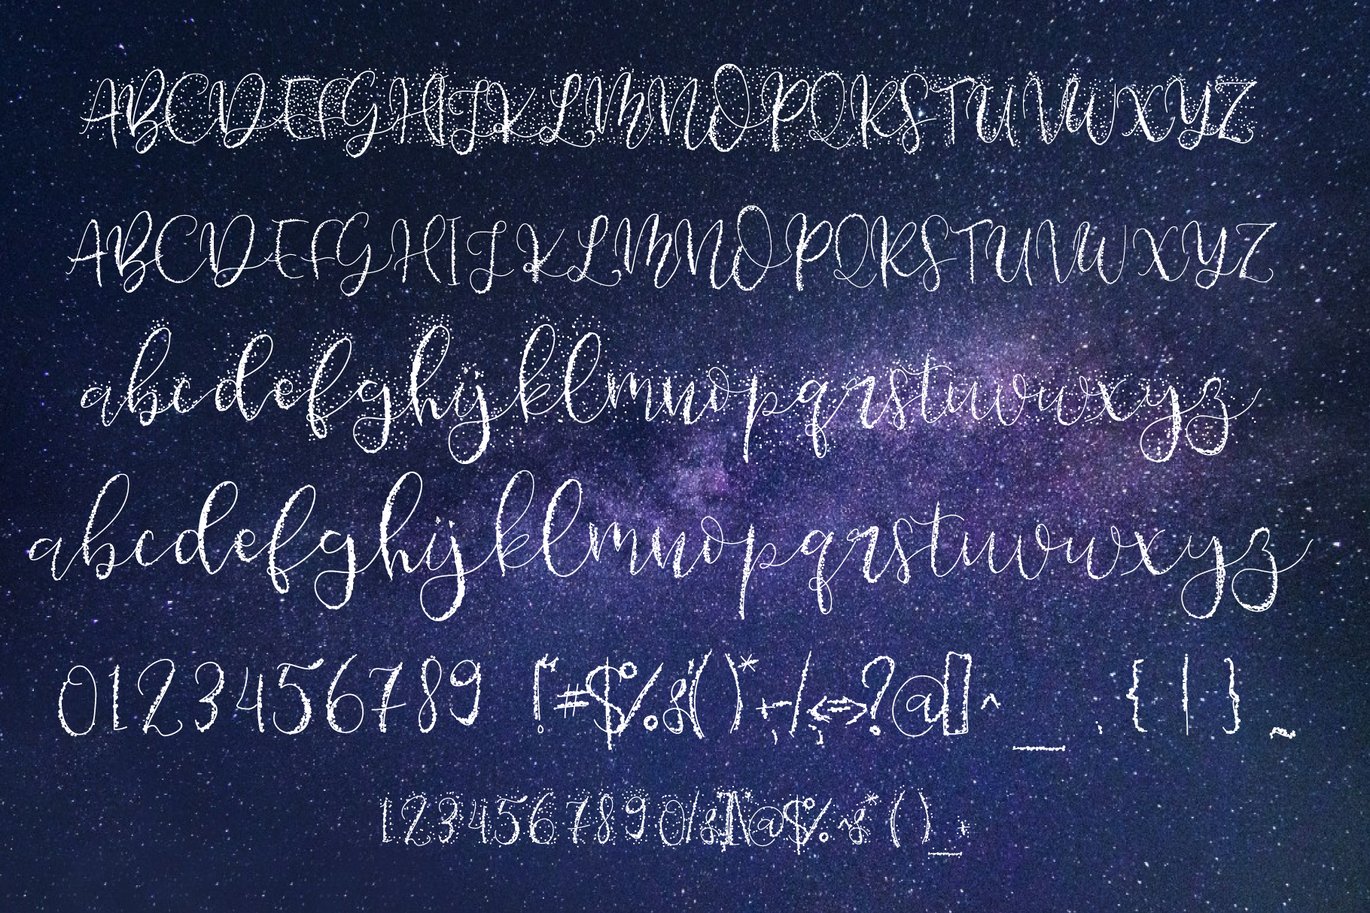 ABCDEFGHIJKLMNOPQRSTUVWXYZ
ABCDEFGHIJKLMNOPQRSTUVWXYZ
abcdefghijklmnopqrstuvwxyz
abcdefghijklmnopqrstuvwxyz
0123456789 !"#$%&'()*+,-./:;<=>?@[]^_ {|}~
1234567890 @$%^&*()_+